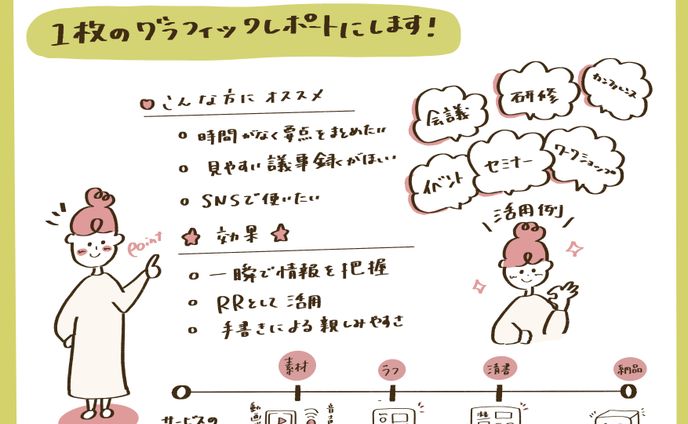 1枚のグラフィックレポートにします!
こんな方に オススメ
時間がなく要点をまとめたい
見やすい議事録がほしい
SNSで使いたい
会議
研修
カンファレンス
イベント
セミナー
ワークショップ
活用例
point
効果
一瞬で情報を把握
RRとして活用
手書きによる親しみやすさ
素材
ラフ
清書
納品
サービスの
動画
音声